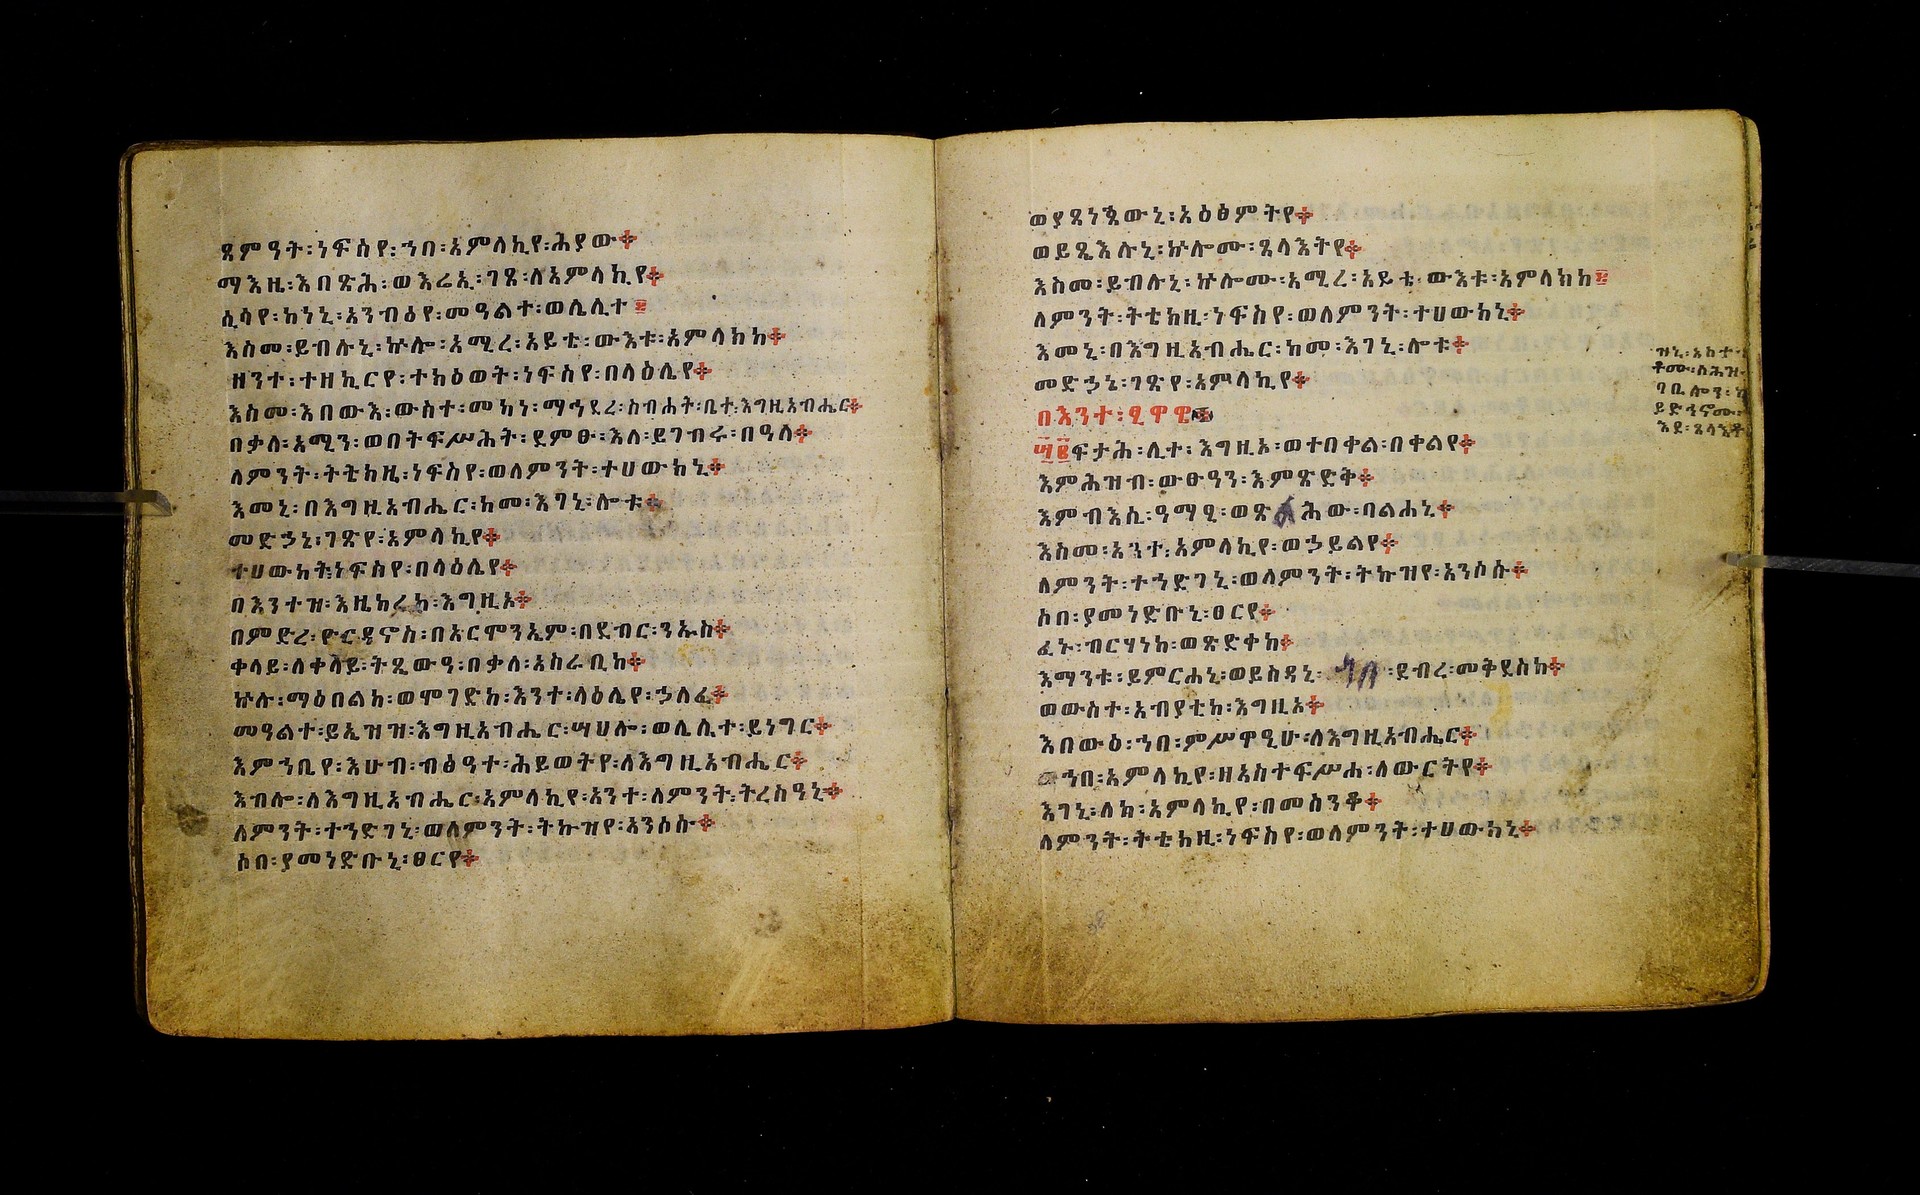 ጸምዓት፡ነፍስየ፡ኀበ፡አምላኪየ፡ሕያው።
ማእዜ፡እበጽሕ፡ወእሬአይ፡ገጸ፡ለአምላኪየ።
ሲሳየ፡ከነኒ፡አንብዕየ፡መዓልተ፡ወሌሊተ።
እስመ፡ይብሉኒ፡ኵሎ፡አሚረ፡አይቴ፡ውእቱ፡አምላክከ።
ዘንተ፡ተዘኪርየ፡ተክዕወት፡ነፍስየ፡በላዕሌየ።
እስመ፡እበውእ፡ውስተ፡መካነ፡ማኅደረ፡ስብሐት፡ቤተ፡እግዚአብሔር።
በቃለ፡አሚን፡ወበትፍሥሕት፡ደምፁ፡እለ፡ይገብሩ፡በዓለ።
ለምንት፡ትቴክዚ፡ነፍስየ፡ወለምንት፡ተሀውክኒ።
እመኒ፡በእግዚአብሔር፡ከመ፡እገኒ፡ሎቱ።
መድኃኒ፡ገጽየ፡አምላኪየ።
ተሀውከት፡ነፍስየ፡በላዕሌየ።
በእንተዝ፡እዜከረከ፡እግዚኦ።
በምድረ፡ዮርዳኖስ፡በአርሞንኤም፡በደብር፡ንኡስ።
ቀላይ፡ለቀላይ፡ትጼውዓ፡በቃለ፡አስራቢከ።
ኵሉ፡ማዕበልከ፡ወሞገድከ፡እንተ፡ላዕሌየ፡ኃለፈ።
መዓልተ፡ይኤዝዝ፡እግዚአብሔር፡ሣህሎ፡ወሌሊተ፡ይነግር።
እምኀቤየ፡እሁብ፡ብፅዓተ፡ሕይወትየ፡ለእግዚአብሔር።
እብሎ፡ለእግዚአብሔር፡አምላኪየ፡አንተ፡ለምንት፡ትረስዓኒ።
ለምንት፡ተኀድገኒ፡ወለምንት፡ትኬዝየ፡አንሶሱ።
ሶበ፡ያመነድቡኒ፡ፀርየ።
ወያጸነጼውኒ፡አዕፅምትየ።
ወይጼእሉኒ፡ኵሎሙ፡ጸላእትየ።
እስመ፡ይብሉኒ፡ኵሎሙ፡አሚረ፡አይቴ፡ውእቱ፡አምላክከ።
ለምንት፡ትቴክዚ፡ነፍስየ፡ወለምንት፡ተሀውክኒ።
እመኒ፡በእግዚአብሔር፡ከመ፡እገኒ፡ሎቱ።
መድኃኔ፡ገጽየ፡አምላኪየ።
በእንተ፡ፂዋዌ።
፵፪ፍታሕ፡ሊተ፡እግዚኦ፡ወተበቀል፡በቀልየ።
እምሕዝብ፡ውፁዓን፡እምጽድቅ።
እምብእሲ፡ዓማፂ፡ወጽልሕው፡ባልሐኒ።
እስመ፡አንተ፡አምላኪየ፡ወኃይልየ።
ለምንት፡ተኀድገኒ፡ወለምንት፡ትኬዝየ፡አንሶሱ።
ሶበ፡ያመነድቡኒ፡ፀርየ።
ፈኑ፡ብርሃነከ፡ወጽድቀከ።
እማንቱ፡ይምርሐኒ፡ወይስዳኒ፡ኀበ፡ደብረ፡መቅደስከ።
ወውስተ፡አብያቲከ፡እግዚኦ።
እበውዕ፡ኀበ፡ምሥዋዒሁ፡ለእግዚአብሔር።
ኀበ፡አምላኪየ፡ዘአስተፍሥሐ፡ለውርትየ።
እገኒ፡ለከ፡አምላኪየ፡በመሰንቆ።
ለምንት፡ትቴክዚ፡ነፍስየ፡ወለምንት፡ተሀውክኒ።